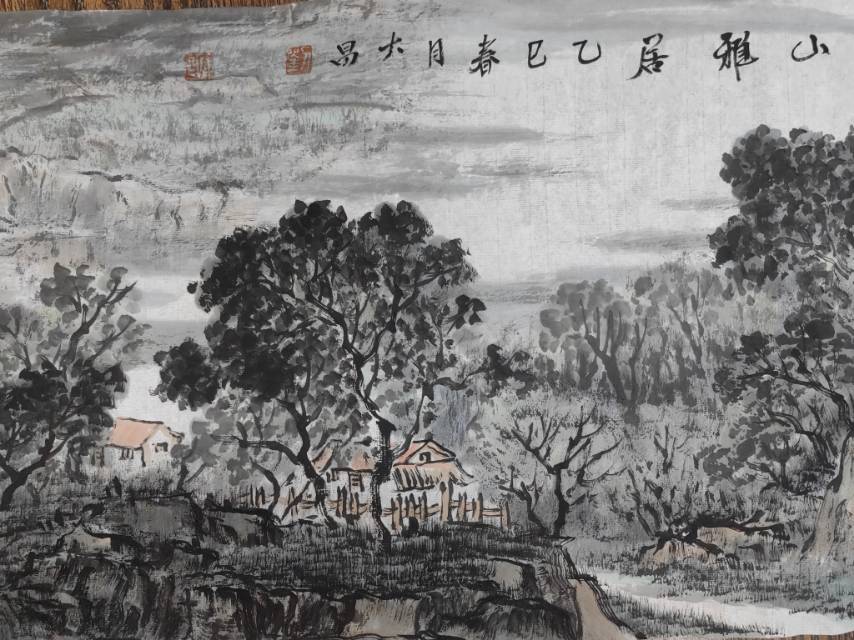 山雅居乙巳春月大昌